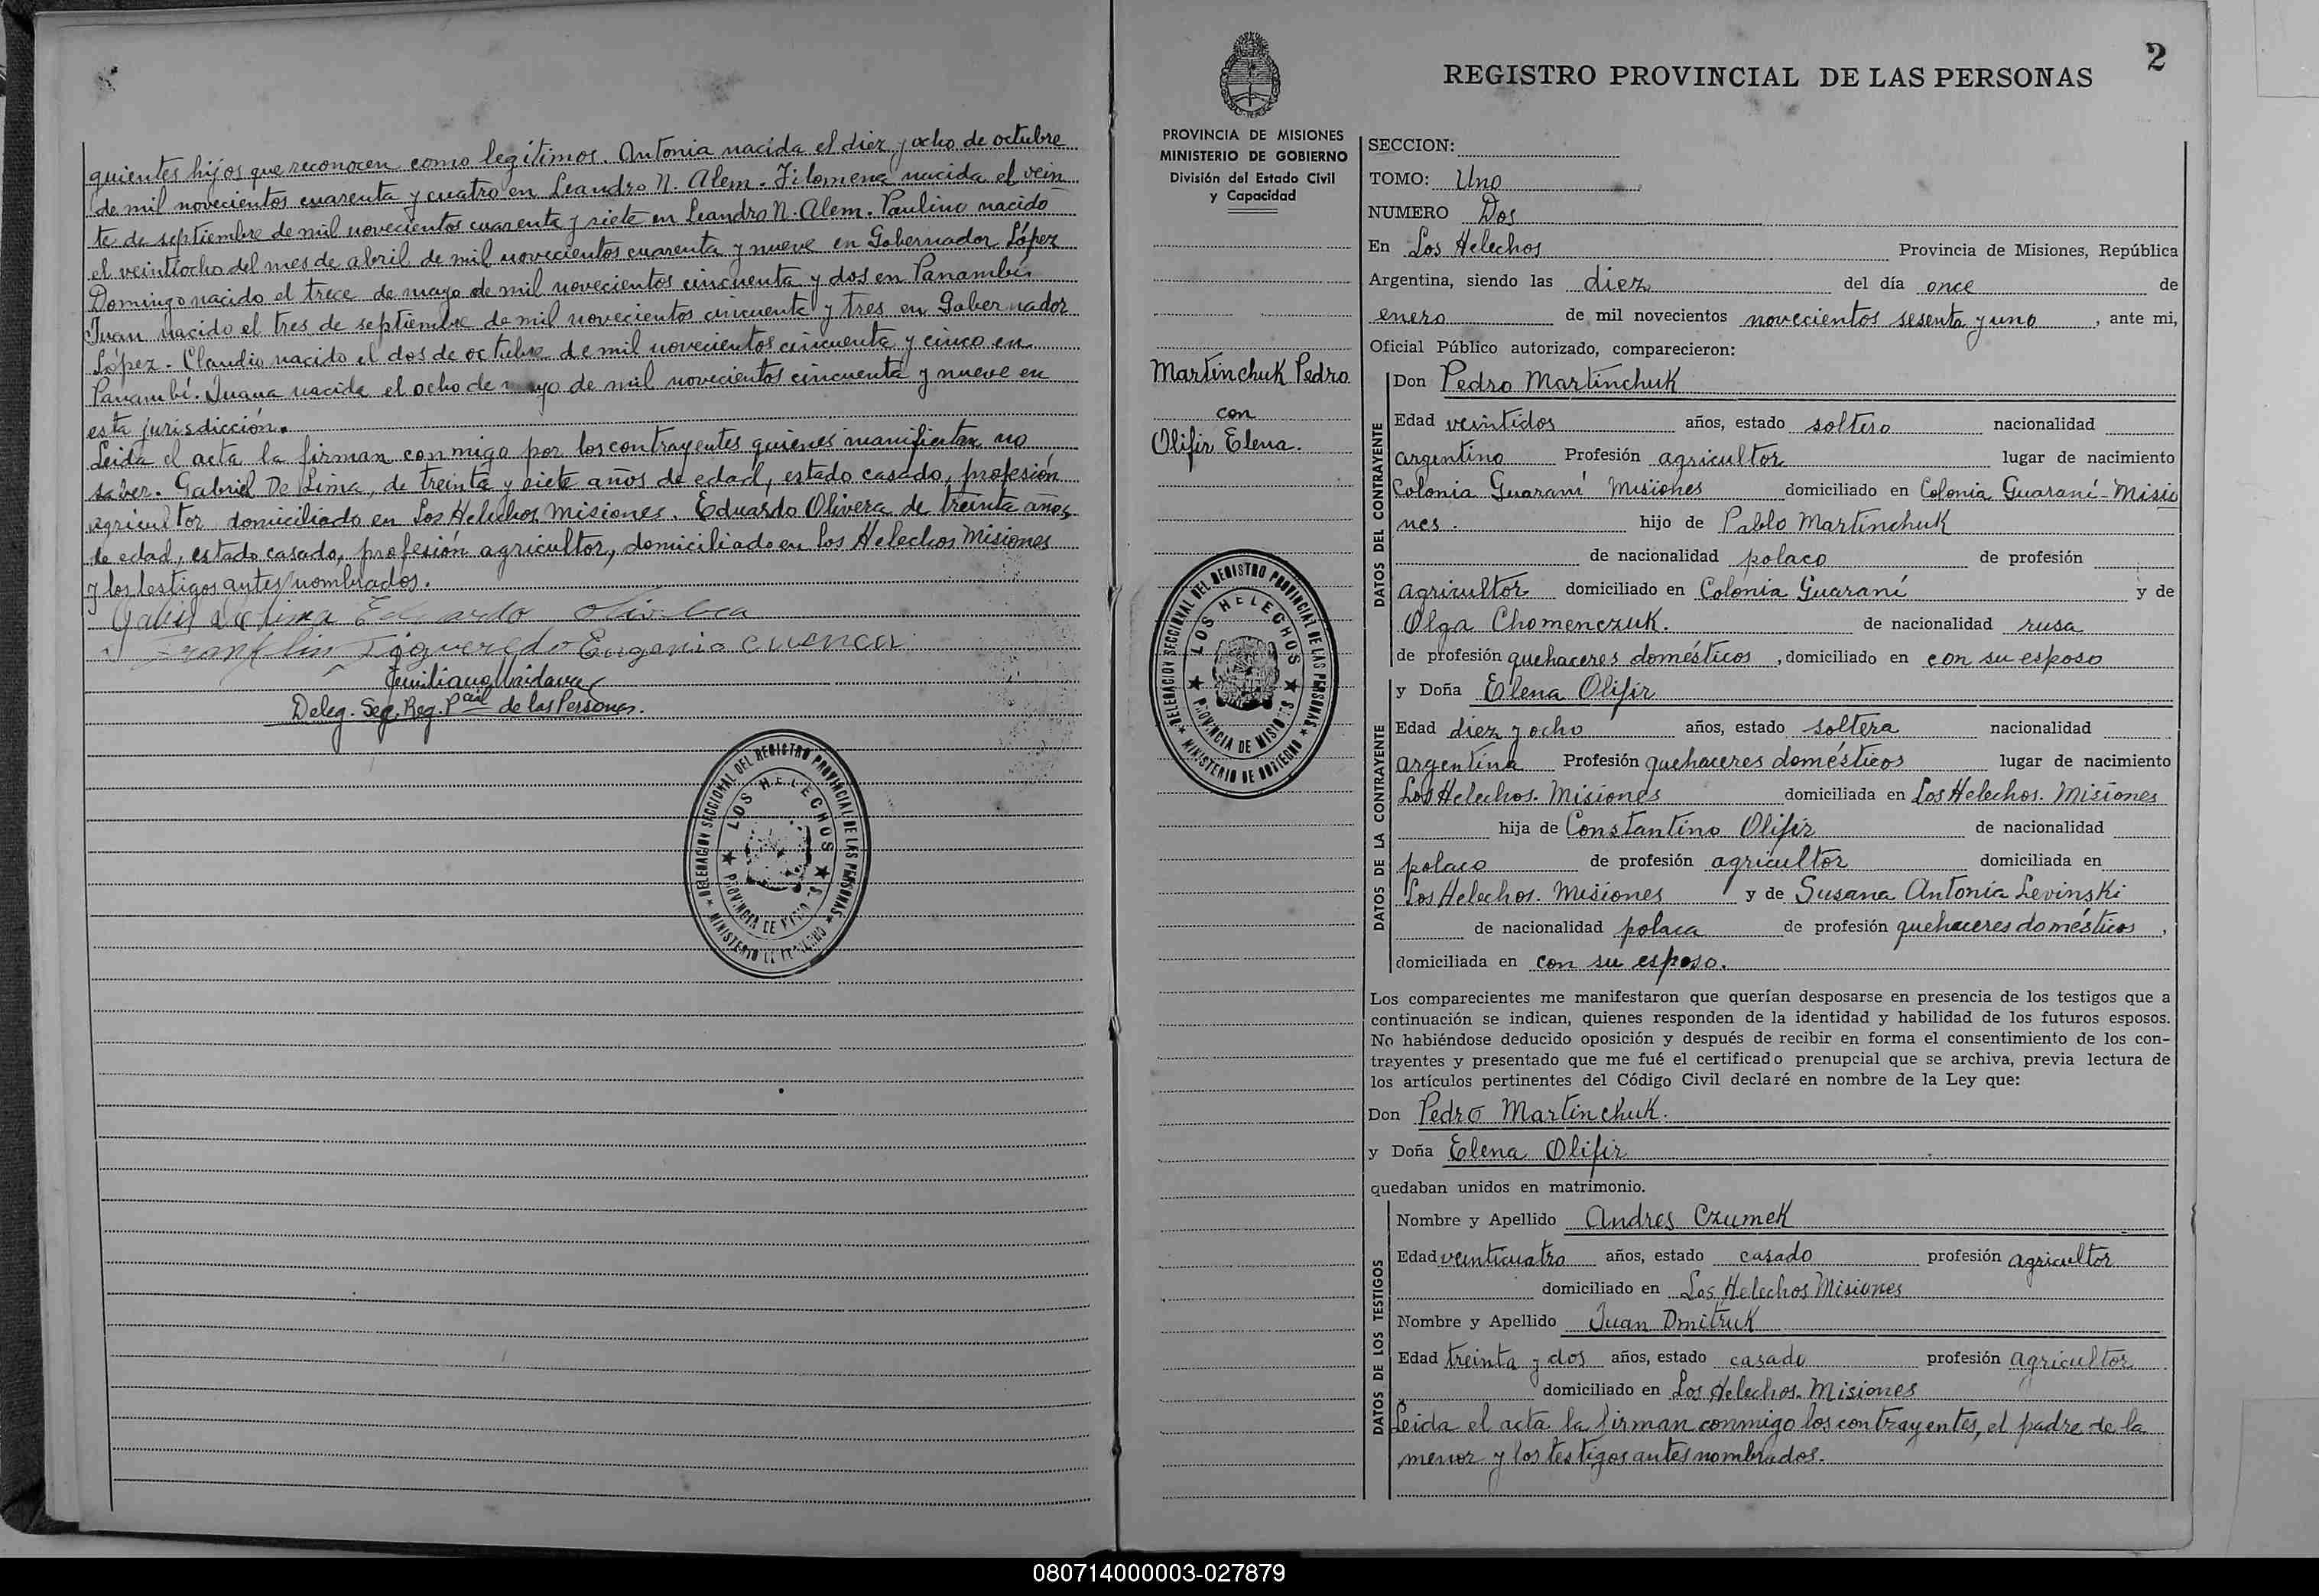 quientes hijos que reconocen como legítimos. Antonia nacida el diez y ocho de octubre
de mil novecientos cuarenta y cuatro en Leandro N. Alem. Filomena nacida el vein
te de septiembre de mil novecientos cuarenta y siete en Leandro N. Alem. Paulino nacido
el veintiocho del mes de abril de mil novecientos cuarenta y nueve en Gobernador López
Domingo nacido el trece de mayo de mil novecientos cincuenta y dos en Panambí.
Juan nacido el tres de septiembre de mil novecientos cincuenta y tres en Gobernador
López. Claudio nacido el dos de octubre de mil novecientos cincuenta y cinco en
Panambí. Juana nacida el ocho de mayo de mil novecientos cincuenta y nueve en
esta jurisdicción.
Leida el acta la firman conmigo por los contrayentes quienes manifiestan no
saber. Gabriel De Lima, de treinta y siete años de edad, estado casado, profesión
agricultor domiciliado en Los Helechos Misiones. Eduardo Olivera de treinta años
de edad, estado casado, profesión agricultor, domiciliado en los Helechos Misiones
y los testigos antes nombrados.
Eduardo Olivera
Franklin Figueredo Eugenio Cuenca
Deleg. Sec. Reg. Pcial de las Personas.
DELEGACION SECCIONAL DEL REGISTRO PROVINCIAL DE LAS PERSONAS
LOS HELECHOS
PROVINCIA DE MISIONES
MINISTERIO DE GOBIERNO
2
REGISTRO PROVINCIAL DE LAS PERSONAS
PROVINCIA DE MISIONES
MINISTERIO DE GOBIERNO
División del Estado Civil
y Capacidad
Martinchuk Pedro
con
Olifir Elena.
DELEGACION SECCIONAL DEL REGISTRO PROVINCIAL DE LAS PERSONAS
LOS HELECHOS
PROVINCIA DE MISIONES
MINISTERIO DE GOBIERNO
SECCION:
TOMO: Uno
NUMERO Dos
En Los Helechos Provincia de Misiones, República
Argentina, siendo las diez del día once de
enero de mil novecientos novecientos sesenta y uno, ante mi,
Oficial Público autorizado, comparecieron:
DATOS DEL CONTRAYENTE
Don Pedro Martinchuk
Edad veintidos años, estado soltero nacionalidad
argentino Profesión agricultor lugar de nacimiento
Colonia Guaraní Misiones domiciliado en Colonia Guaraní-Misio
nes. hijo de Pablo Martinchuk
de nacionalidad polaco de profesión
agricultor domiciliado en Colonia Guaraní y de
Olga Chomenczuk. de nacionalidad rusa
de profesión quehaceres domésticos, domiciliado en con su esposo
DATOS DE LA CONTRAYENTE
y Doña Elena Olifir
Edad diez y ocho años, estado soltera nacionalidad
argentina Profesión quehaceres domésticos lugar de nacimiento
Los Helechos. Misiones domiciliada en Los Helechos. Misiones
hija de Constantino Olifir de nacionalidad
polaco de profesión agricultor domiciliada en
Los Helechos. Misiones y de Susana Antonia Levinski
de nacionalidad polaca de profesión quehaceres domésticos,
domiciliada en con su esposo.
Los comparecientes me manifestaron que querían desposarse en presencia de los testigos que a
continuación se indican, quienes responden de la identidad y habilidad de los futuros esposos.
No habiéndose deducido oposición y después de recibir en forma el consentimiento de los con-
trayentes y presentado que me fué el certificado prenupcial que se archiva, previa lectura de
los artículos pertinentes del Código Civil declaré en nombre de la Ley que:
Don Pedro Martinchuk.
y Doña Elena Olifir
quedaban unidos en matrimonio.
DATOS DE LOS TESTIGOS
Nombre y Apellido Andres Czumek
Edad veinticuatro años, estado casado profesión agricultor
domiciliado en Los Helechos Misiones
Nombre y Apellido Juan Dmitruk
Edad treinta y dos años, estado casado profesión agricultor
domiciliado en Los Helechos. Misiones
Leida el acta la firman conmigo los contrayentes, el padre de la
menor y los testigos antes nombrados.
080714000003-027879